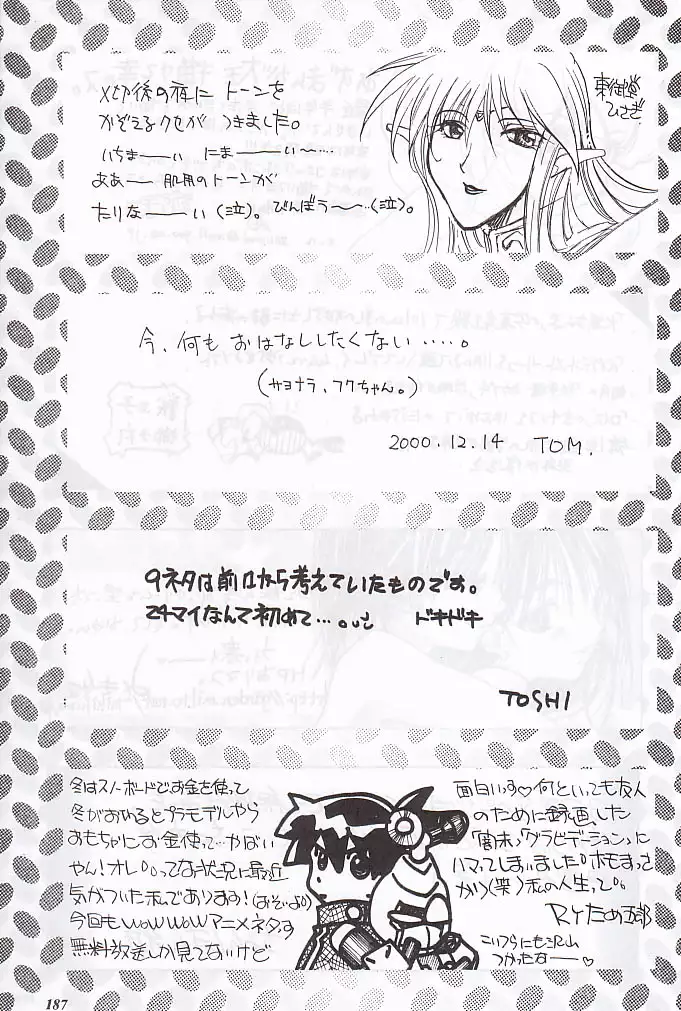 〆切後の夜に トーンを
かぞえるクセが つきました。
いちまーーーい にまーーーい〜‥‥
ああー 肌用のトーンが
たりなーーーい(泣)。びんぼう〜〜…(泣)。
東御堂
ひさぎ
今、何も おはなししたくない ‥‥‥。
(サヨナラ、フクちゃん。)
2000.12.14 TOM.
9ネタは前々から考えていたものです。
24マイなんて初めて…。 ドキドキ
TOSHI
冬はスノーボードでお金を使って
冬がおわるとプラモデルやら
おもちゃにお金使って…かばい
やん!オレ°°ってな状況に最近
気がついた私であります!(おそいよ)
今回もWOWWOWアニメネタっす
無料放送しか見てないけど
面白いっす♡何といっても友人
のために録画した
「闇末」「グラビテーション」に
ハマってしまいました°ホモまっさ
かり(笑)私の人生って°。
RYため五郎
こいつらにも沢山
つかったなーー
187